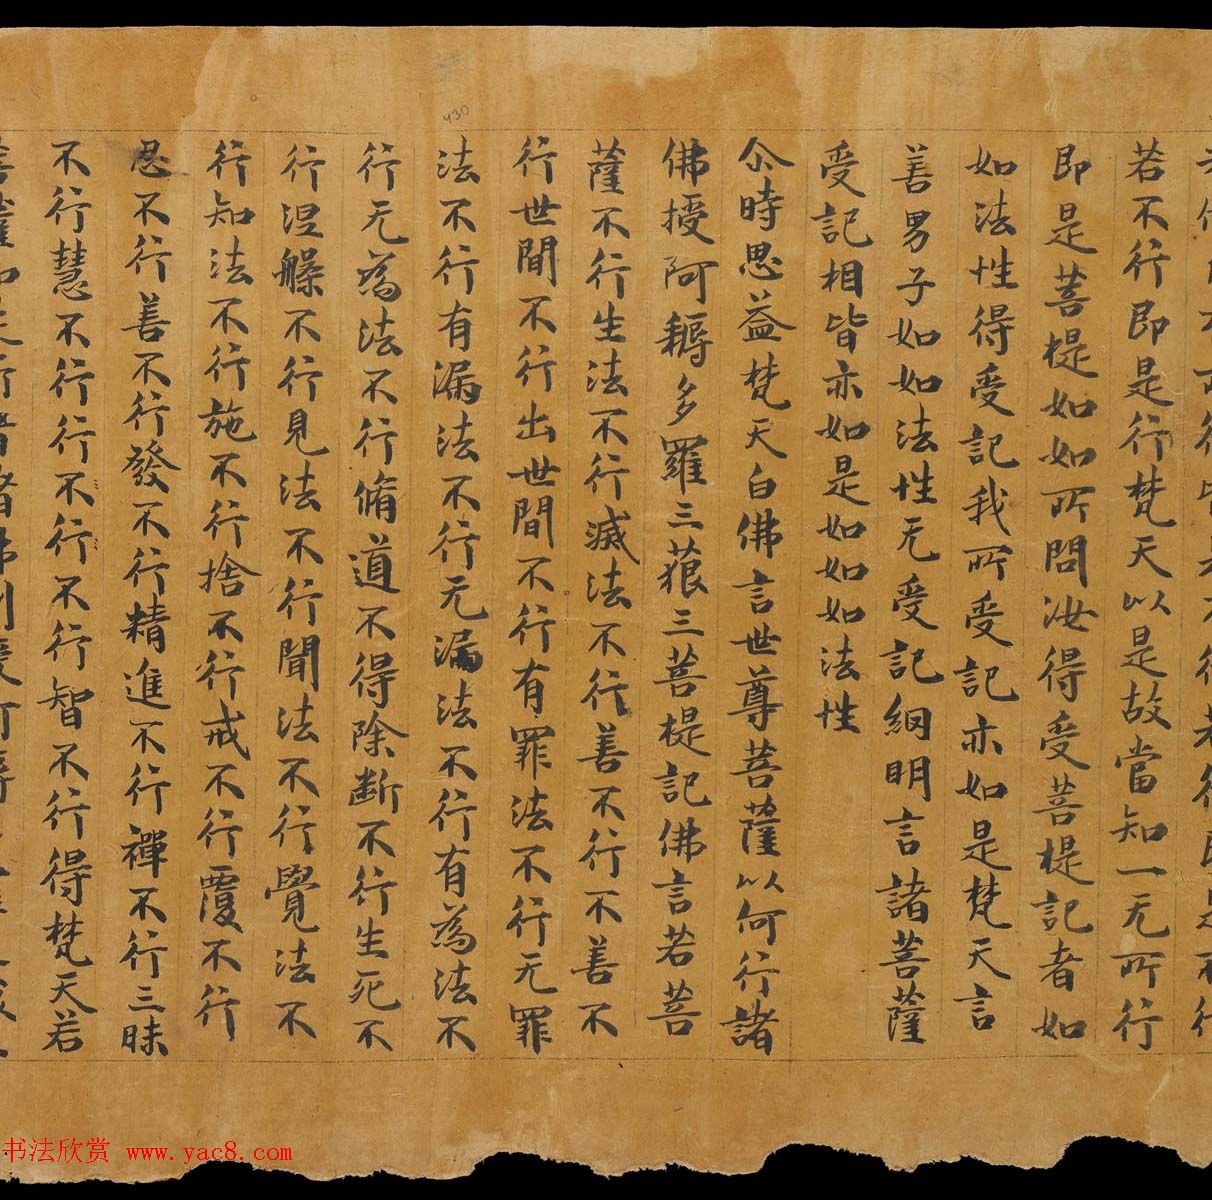 430
若不行即是行梵天以是故當知一无所行
即是菩提如如所問汝得受菩提記者如
如法性得受記我所受記亦如是梵天言
善男子如如法性无受記網明言諸菩薩
受記相皆亦如是如如如法性
尒時思益梵天白佛言世尊菩薩以何行諸
佛授阿耨多羅三藐三菩提記佛言若菩
薩不行生法不行滅法不行善不行不善不
行世間不行出世間不行有罪法不行无罪
法不行有漏法不行无漏法不行有為法不
行无為法不行脩道不得除斷不行生死不
行涅槃不行見法不行聞法不行覺法不
行知法不行施不行捨不行戒不行覆不行
忍不行善不行發不行精進不行禪不行三昧
不行慧不行行不行不行智不行得梵天若
书法欣赏 www.yac8.com